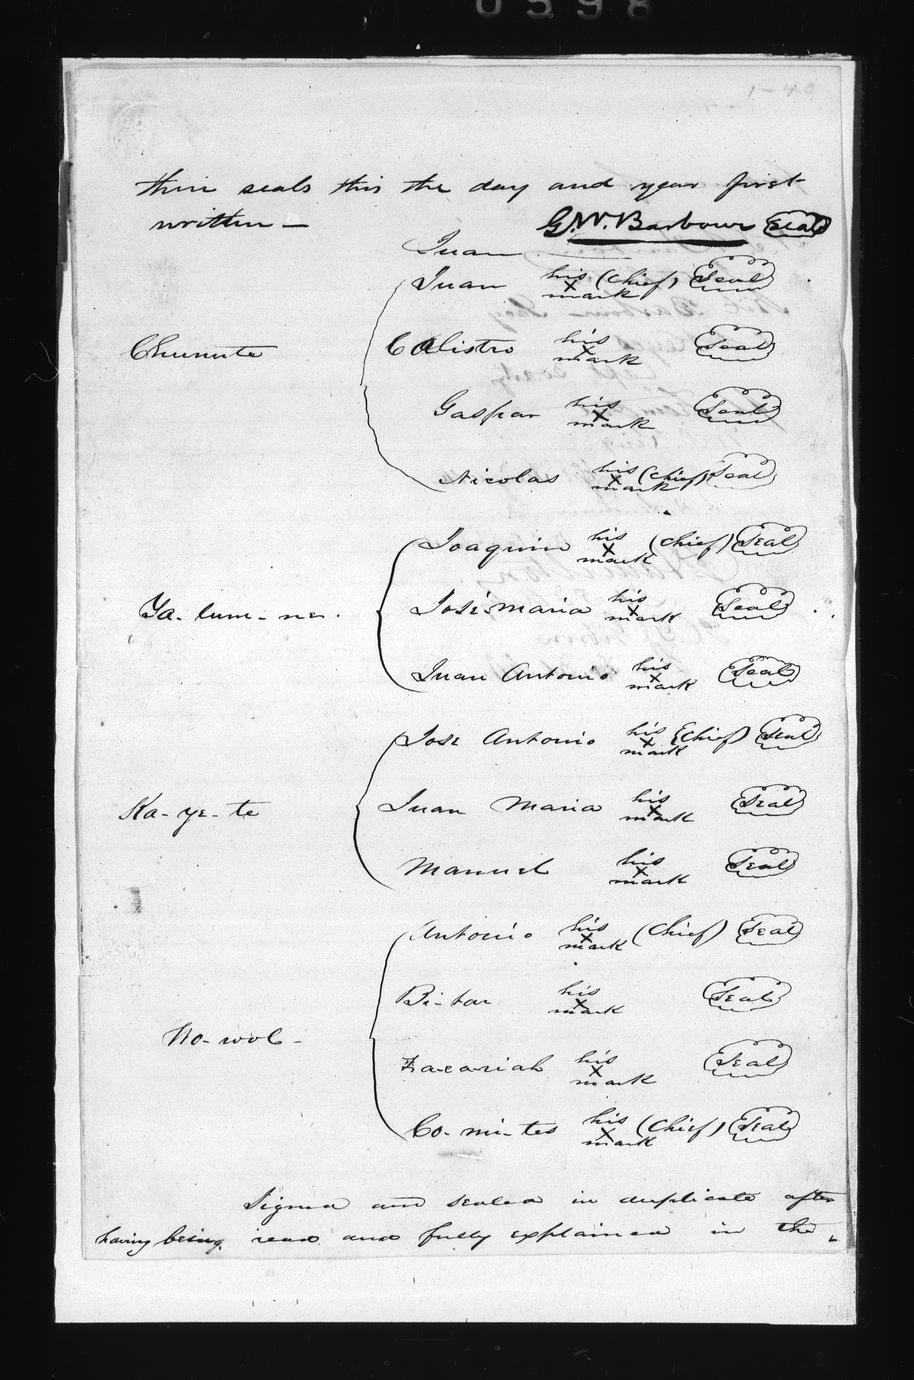 0598
1-40
their seals this the day and year first
written —
G.W. Barbour Seal
Juan
Chunute
Juan his X mark (Chief) Seal
Calistro his X mark Seal
Gaspar his X mark Seal
Nicolas his X mark (Chief) Seal
Ta-lum-ne.
Joaquin his X mark (Chief) Seal
José Maria his X mark Seal
Juan Antonio his X mark Seal
Ka-ye-te
Jose Antonio his X mark (Chief) Seal
Juan Maria his X mark Seal
Manuel his X mark Seal
No-wol-
Antonio his X mark (Chief) Seal
Bi-tar his X mark Seal
Zacariah his X mark Seal
Co-mi-tes his X mark (Chief) Seal
Signed and sealed in duplicate after
having being read and fully explained in the